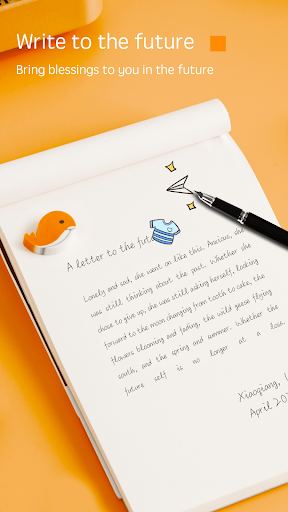 Write to the future
Bring blessings to you in the future
A letter to the fut
Lonely and sad, she went on like this. Anxious, she
was still thinking about the past. Whether she
chose to give up, she was still asking herself, looking
forward to the moon changing from tooth to cake, the
flowers blooming and fading, the wild geese flying
south, and the spring and summer. Whether the
future self is no longer at a loss.
Xiaoqiang,
April 20